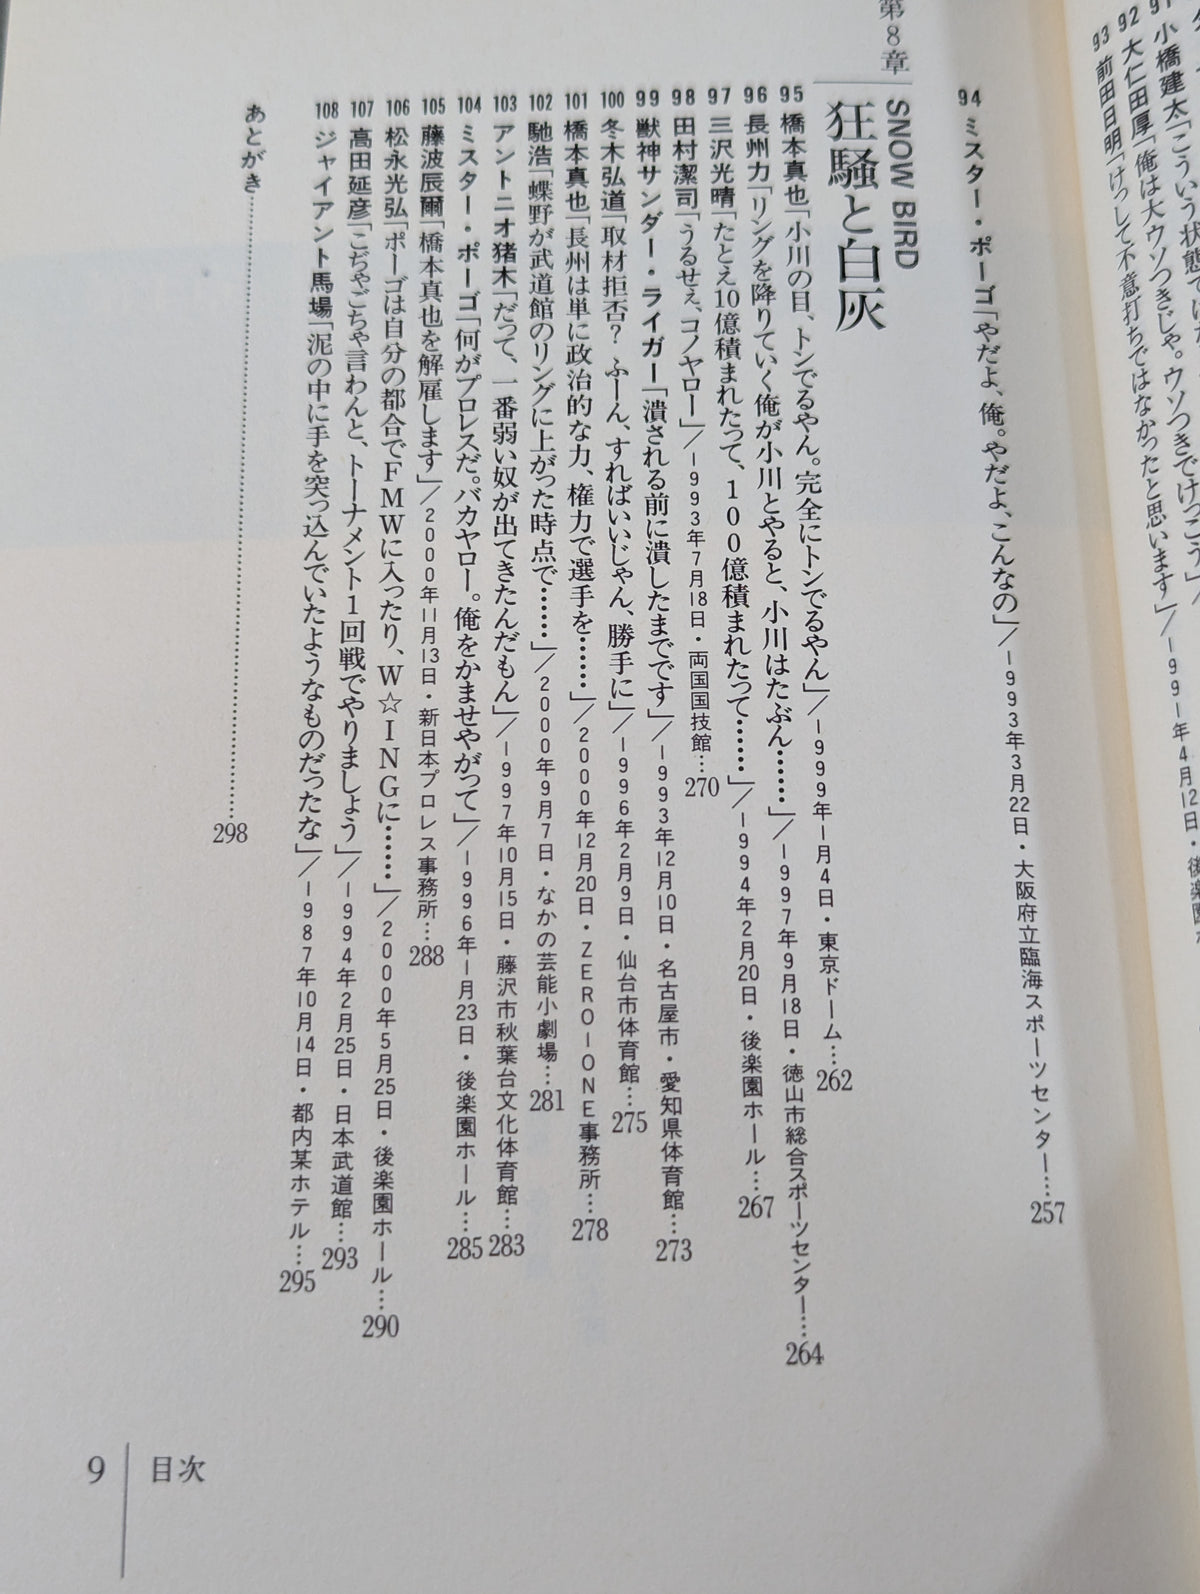 91 小橋建太「こういう状態では
92 大仁田厚「俺は大ウソつきじゃ。ウソつきでけっこう」／
93 前田日明「けっして不意打ちではなかったと思います」／1991年4月12日・後楽園
94 ミスター・ポーゴ「やだよ、俺。やだよ、こんなの」／1993年3月22日・大阪府立臨海スポーツセンター…257
第8章
SNOW BIRD
狂騒と白灰
95 橋本真也「小川の目、トンでるやん。完全にトンでるやん」／1999年1月4日・東京ドーム…262
96 長州力「リングを降りていく俺が小川とやると、小川はたぶん……」／1997年9月18日・徳山市総合スポーツセンター…264
97 三沢光晴「たとえ10億積まれたって、100億積まれたって……」／1994年2月20日・後楽園ホール…267
98 田村潔司「うるせぇ、コノヤロー」／1993年7月18日・両国国技館…270
99 獣神サンダー・ライガー「潰される前に潰したまでです」／1993年12月10日・名古屋市・愛知県体育館…273
100 冬木弘道「取材拒否？ ふーん、すればいいじゃん、勝手に」／1996年2月9日・仙台市体育館…275
101 橋本真也「長州は単に政治的な力、権力で選手を……」／2000年12月20日・ZERO-ONE事務所…278
102 馳浩「蝶野が武道館のリングに上がった時点で……」／2000年9月7日・なかの芸能小劇場…281
103 アントニオ猪木「だって、一番弱い奴が出てきたんだもん」／1997年10月15日・藤沢市秋葉台文化体育館…283
104 ミスター・ポーゴ「何がプロレスだ。バカヤロー。俺をかませやがって」／1996年1月23日・後楽園ホール…285
105 藤波辰爾「橋本真也を解雇します」／2000年11月13日・新日本プロレス事務所…288
106 松永光弘「ポーゴは自分の都合でFMWに入ったり、W☆INGに……」／2000年5月25日・後楽園ホール…290
107 高田延彦「こぢゃごちゃ言わんと、トーナメント1回戦でやりましょう」／1994年2月25日・日本武道館…293
108 ジャイアント馬場「泥の中に手を突っ込んでいたようなものだったな」／1987年10月14日・都内某ホテル…295
あとがき……298
9 目次